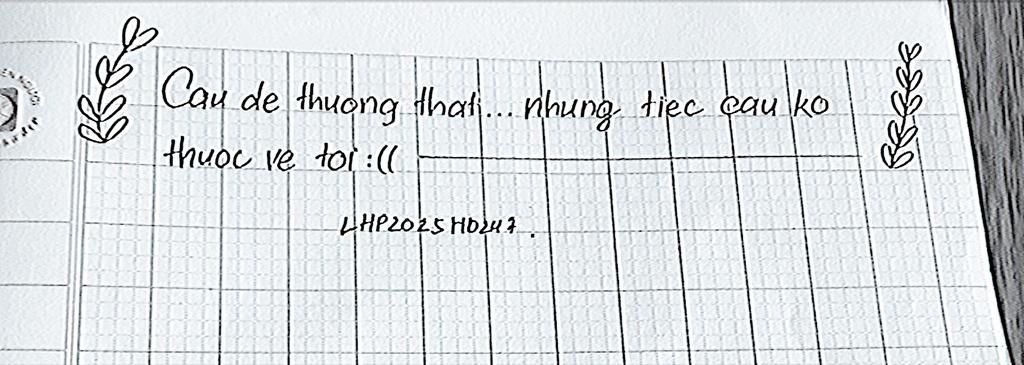 Cau de thuong thati... nhung tiec cau ko
thuoc ve toi :((
LHP2025HD247.